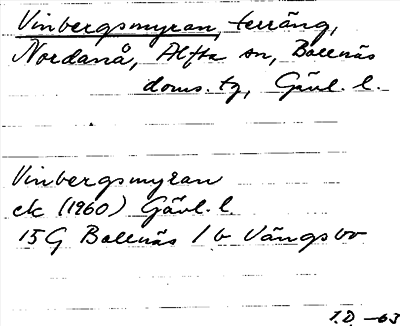 Vinbergsmyran, terräng,
Nordanå, Alfta sn, Bollnäs
doms. tg, Gävl. l.
Vinbergsmyran
ek (1960) Gävl. l.
15G Bollnäs 1 b Vängsbo
I.D. -63